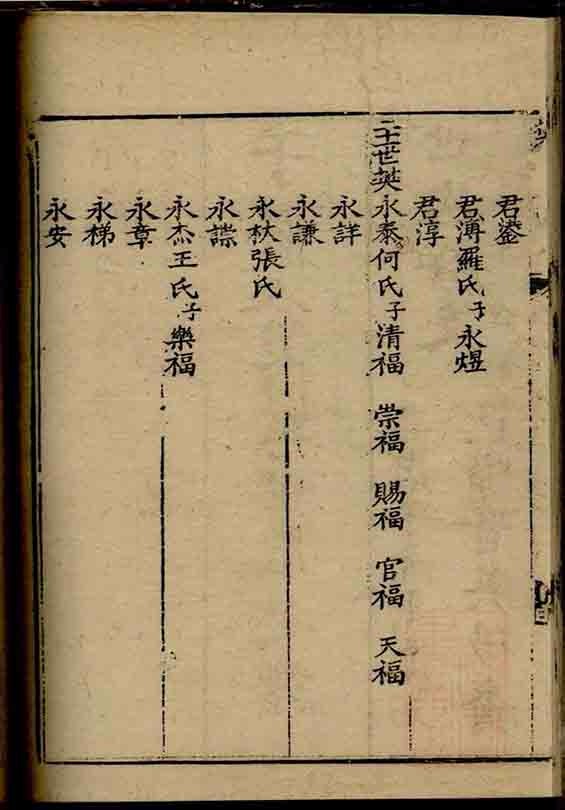 君
君溥羅氏子永煜
君淳
二十一世英永泰何氏子清福 崇福 賜福 官福 天福
永詳
永謙
永杕張氏
永
永杰王氏子樂福
永章
永梯
永安